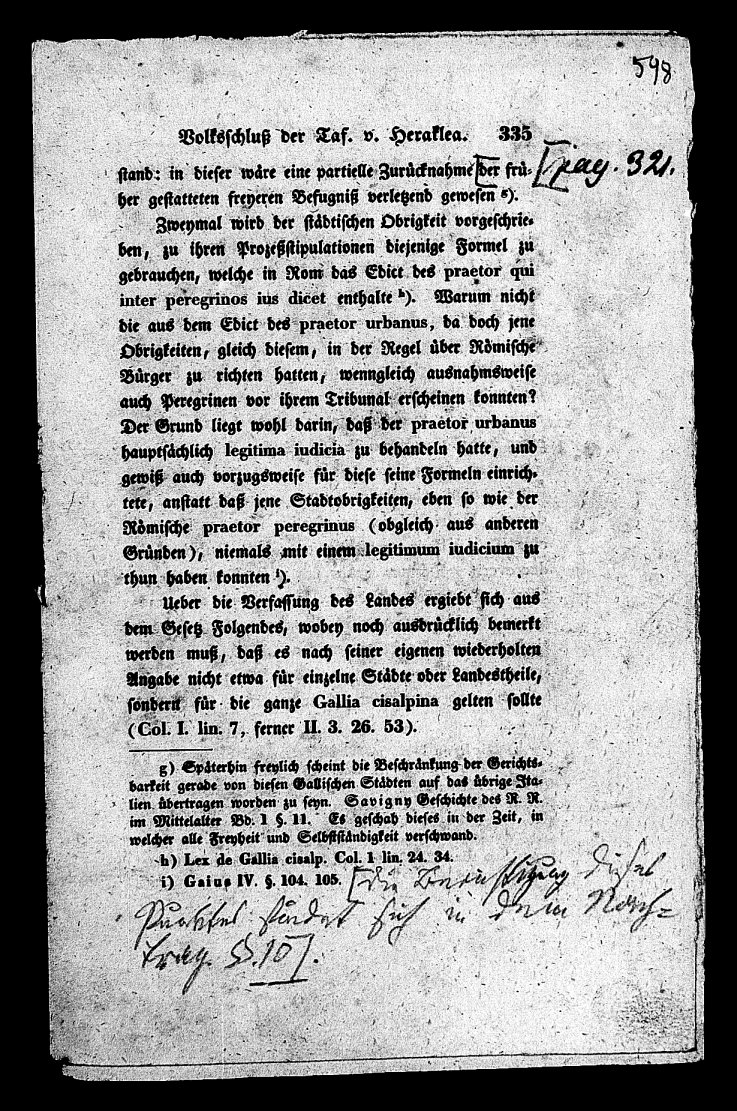 598
Volksschluß der Taf. v. Heraklea. 335
stand: in dieser wäre eine partielle Zurücknahme [der frü- [pag. 321.
her gestatteten freyeren Befugniß verletzend gewesen g).
Zweymal wird der städtischen Obrigkeit vorgeschrie-
ben, zu ihren Prozeßstipulationen diejenige Formel zu
gebrauchen, welche in Rom das Edict des praetor qui
inter peregrinos ius dicet enthalte h). Warum nicht
die aus dem Edict des praetor urbanus, da doch jene
Obrigkeiten, gleich diesem, in der Regel über Römische
Bürger zu richten hatten, wenngleich ausnahmsweise
auch Peregrinen vor ihrem Tribunal erscheinen konnten?
Der Grund liegt wohl darin, daß der praetor urbanus
hauptsächlich legitima iudicia zu behandeln hatte, und
gewiß auch vorzugsweise für diese seine Formeln einrich-
tete, anstatt daß jene Stadtobrigkeiten, eben so wie der
Römische praetor peregrinus (obgleich aus anderen
Gründen), niemals mit einem legitimum iudicium zu
thun haben konnten i).
Ueber die Verfassung des Landes ergiebt sich aus
dem Gesetz Folgendes, wobey noch ausdrücklich bemerkt
werden muß, daß es nach seiner eigenen wiederholten
Angabe nicht etwa für einzelne Städte oder Landestheile,
sondern für die ganze Gallia cisalpina gelten sollte
(Col. I. lin. 7, ferner II. 3. 26. 53).
g) Späterhin freylich scheint die Beschränkung der Gerichts-
barkeit gerade von diesen Gallischen Städten auf das übrige Ita-
lien übertragen worden zu seyn. Savigny Geschichte des R. R.
im Mittelalter Bd. 1 §. 11. Es geschah dieses in der Zeit, in
welcher alle Freyheit und Selbstständigkeit verschwand.
h) Lex de Gallia cisalp. Col. 1 lin. 24. 34.
i) Gaius IV. §. 104. 105. [Die Berichtigung dieses
Punktes findet sich in dem Nach-
trag. §. 10].